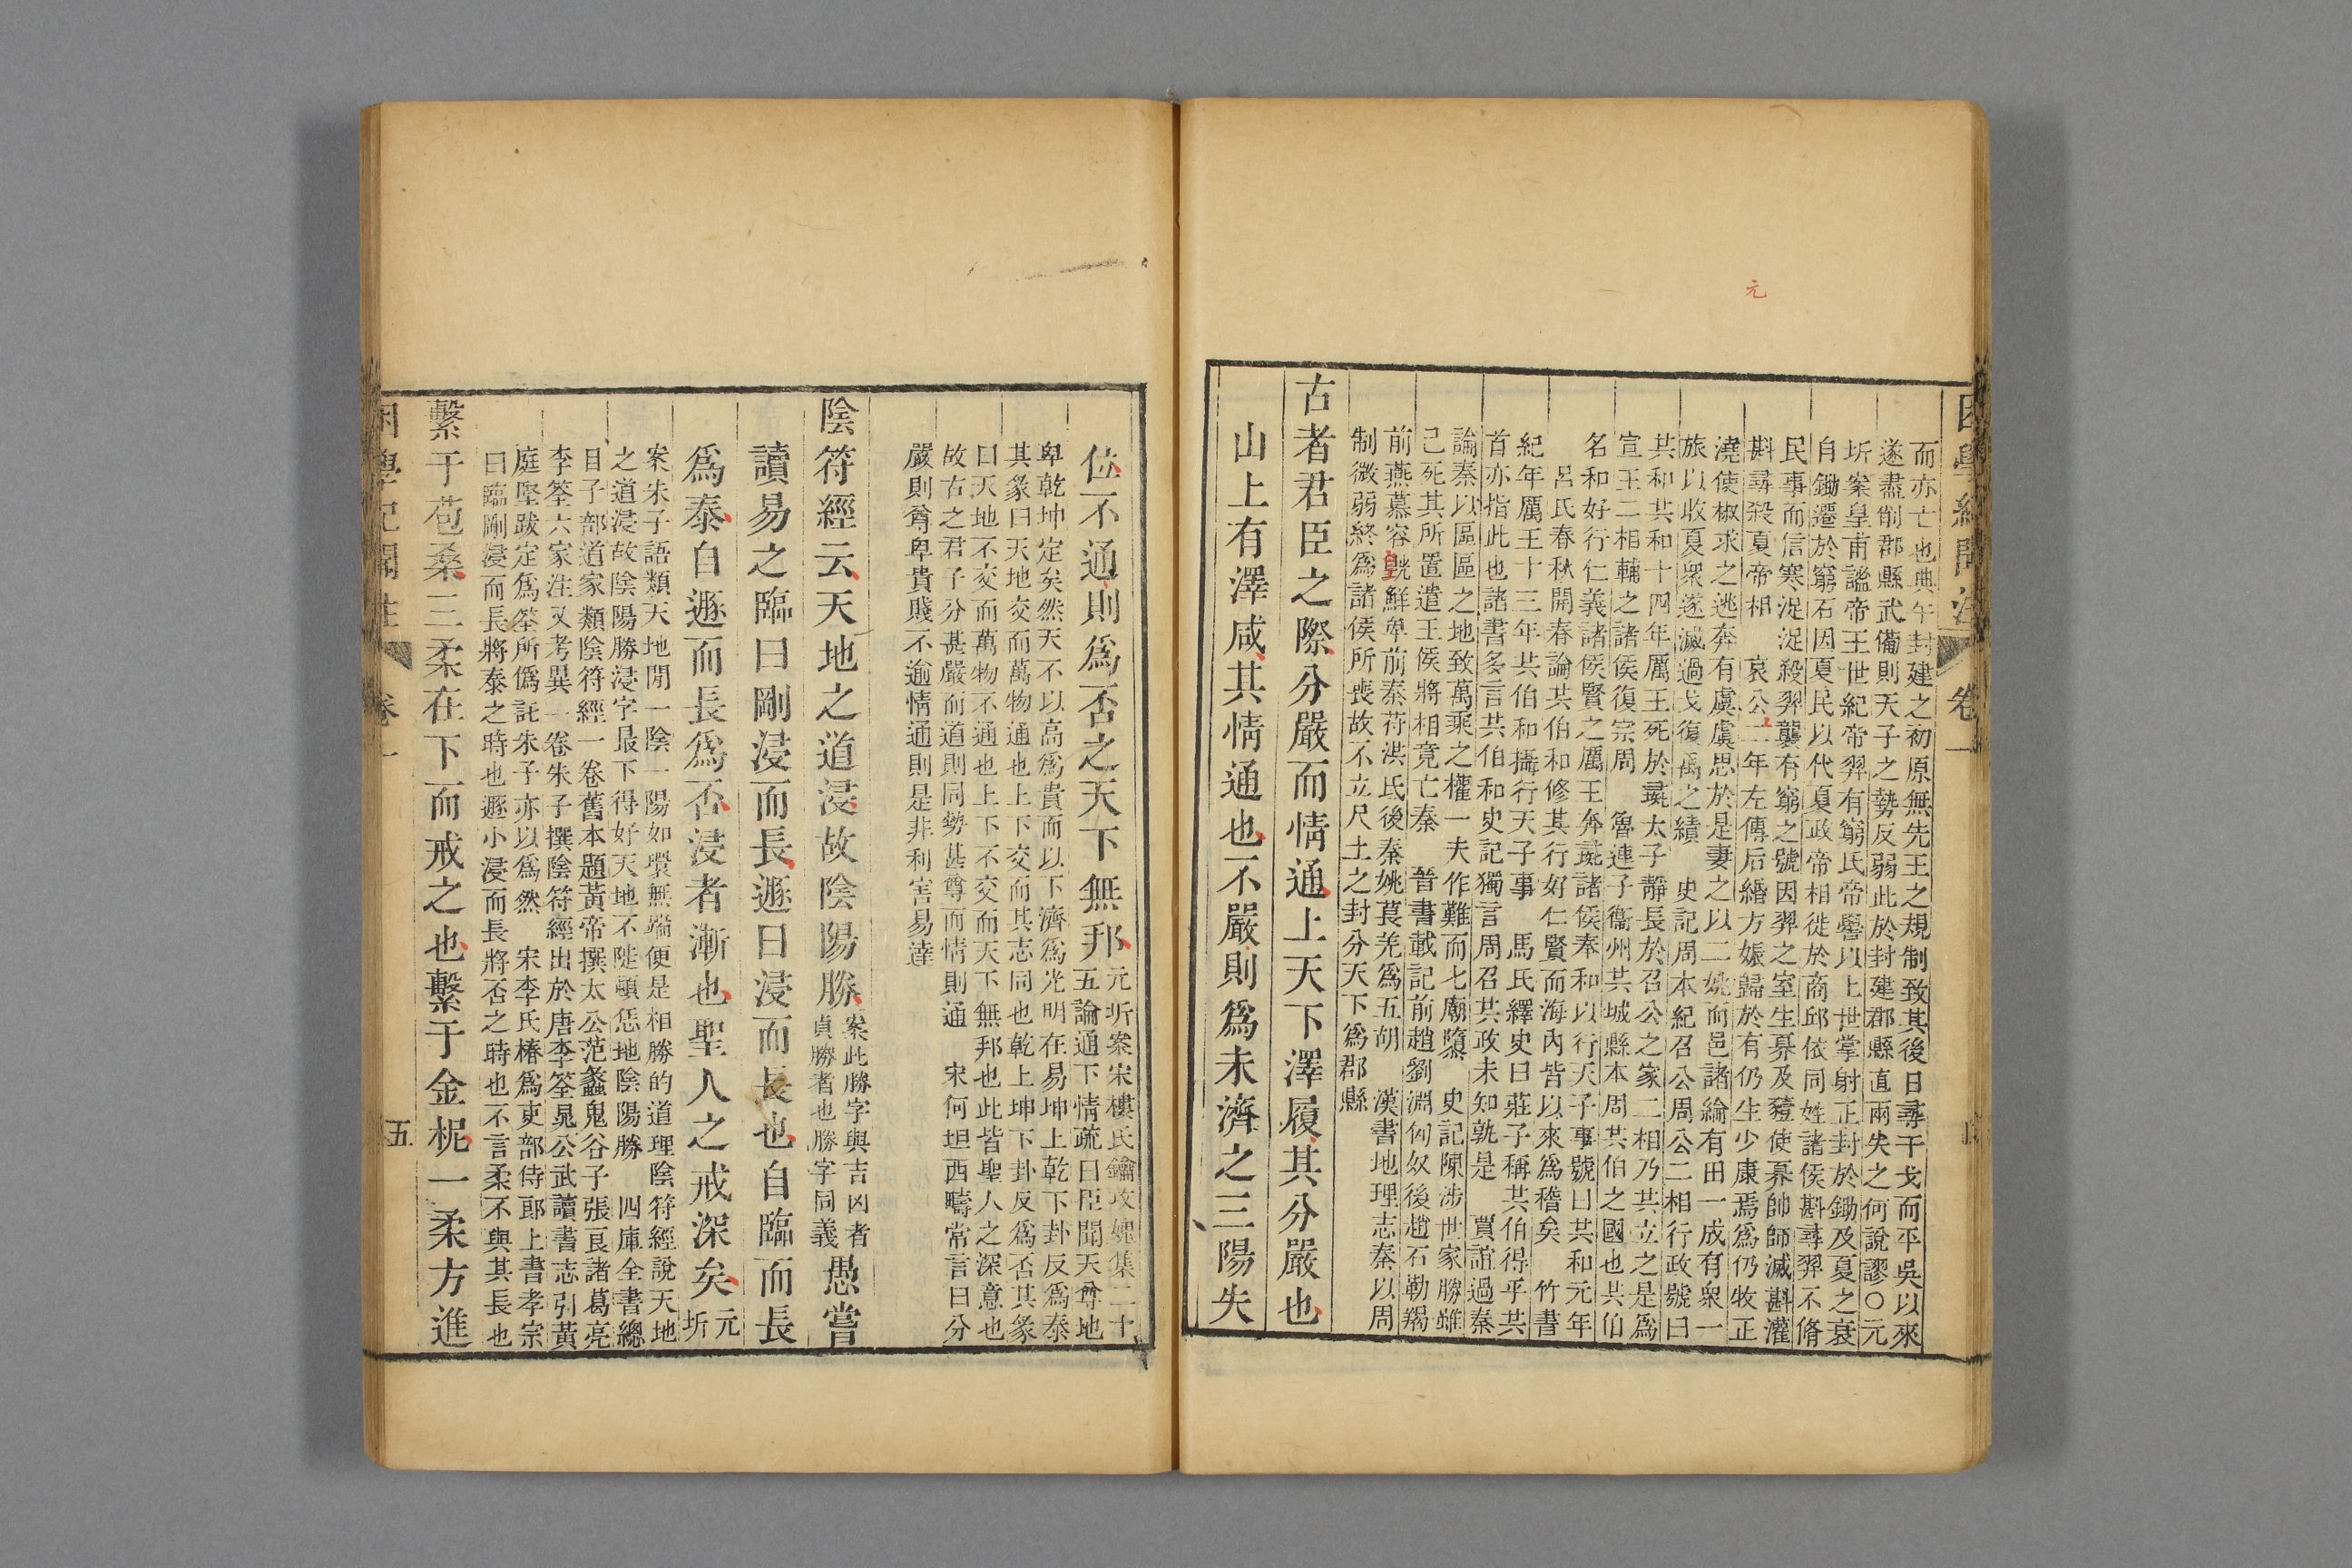 元
困學紀聞注 卷一
而亦亡也典午封建之初原無先王之規制致其後日尋干戈而平吳以來
遂盡削郡縣武備則天子之勢反弱此於封建郡縣直兩失之何說謬○元
圻案皇甫謐帝王世紀帝羿有窮氏帝嚳以上世掌射正封於鋤及夏之衰
自鋤遷於窮石因夏民以代夏政帝相徙於商邱依同姓諸侯斟尋羿不脩
民事而信寒浞浞殺羿襲有窮之號因羿之室生奡及豷使奡帥師滅斟灌
斟尋殺夏帝相 哀公元年左傳后緡方娠歸於有仍生少康焉爲仍牧正
澆使椒求之逃奔有虞虞思於是妻之以二姚而邑諸綸有田一成有衆一
旅以收夏衆遂滅過戈復禹之績 史記周本紀召公周公二相行政號曰
共和共和十四年厲王死於彘太子靜長於召公之家二相乃共立之是爲
宣王二相輔之諸侯復宗周 魯連子衞州共城縣本周共伯之國也共伯
名和好行仁義諸侯賢之厲王奔彘諸侯奉和以行天子事號曰共和元年
呂氏春秋開春論共伯和修其行好仁賢而海內皆以來爲稽矣 竹書
紀年厲王十三年共伯和攝行天子事 馬氏繹史曰莊子稱共伯得乎共
首亦指此也諸書多言共伯和史記獨言周召共政未知孰是 賈誼過秦
論秦以區區之地致萬乘之權一夫作難而七廟隳 史記陳涉世家勝雖
已死其所置遣王侯將相竟亡秦 晉書載記前趙劉淵匈奴後趙石勒羯
前燕慕容皝鮮卑前秦苻洪氏後秦姚萇羌爲五胡 漢書地理志秦以周
皇
制微弱終爲諸侯所喪故不立尺土之封分天下爲郡縣
古者君臣之際分嚴而情通上天下澤履其分嚴也
山上有澤咸其情通也不嚴則爲未濟之三陽失
位不通則爲否之天下無邦元圻案宋樓氏鑰攻媿集二十
五論通下情疏曰臣聞天尊地
卑乾坤定矣然天不以高爲貴而以下濟爲光明在易坤上乾下卦反爲泰
其彖曰天地交而萬物通也上下交而其志同也乾上坤下卦反爲否其彖
曰天地不交而萬物不通也上下不交而天下無邦也此皆聖人之深意也
故古之君子分甚嚴而道則同勢甚尊而情則通 宋何坦西疇常言曰分
嚴則尊卑貴賤不逾情通則是非利害易達
陰符經云天地之道浸故陰陽勝案此勝字與吉凶者
貞勝者也勝字同義愚嘗
讀易之臨曰剛浸而長遯曰浸而長也自臨而長
爲泰自遯而長爲否浸者漸也聖人之戒深矣元
圻
案朱子語類天地閒一陰一陽如環無端便是相勝的道理陰符經說天地
之道浸故陰陽勝浸字最下得好天地不陡頓恁地陰陽勝 四庫全書總
目子部道家類陰符經一卷舊本題黃帝撰太公范蠡鬼谷子張良諸葛亮
李筌六家注又考異一卷朱子撰陰符經出於唐李筌晁公武讀書志引黃
庭堅跋定爲筌所僞託朱子亦以爲然 宋李氏椿爲吏部侍郎上書孝宗
曰臨剛浸而長將泰之時也遯小浸而長將否之時也不言柔不與其長也
繫于苞桑三柔在下而戒之也繫于金柅一柔方進
困學紀聞注 卷一 五